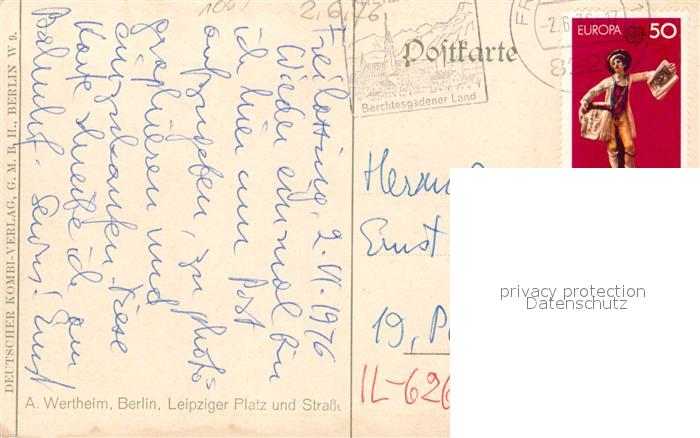 2.6.76
Postkarte
Berchtesgadener Land
-2.6.76-17
EUROPA 50
Freilassing, 2.VI.1976
Wieder einmal bin
ich hier um Post
aufzugeben, zu photo=
graphieren und
einzukaufen. Diese
Karte schreibe ich am
Bahnhof. Servus! Ernst
Ernst
19, P
IL-626
privacy protection
Datenschutz
A. Wertheim, Berlin, Leipziger Platz und Straße
DEUTSCHER KOMBI-VERLAG, G. M. B. H., BERLIN W 9.